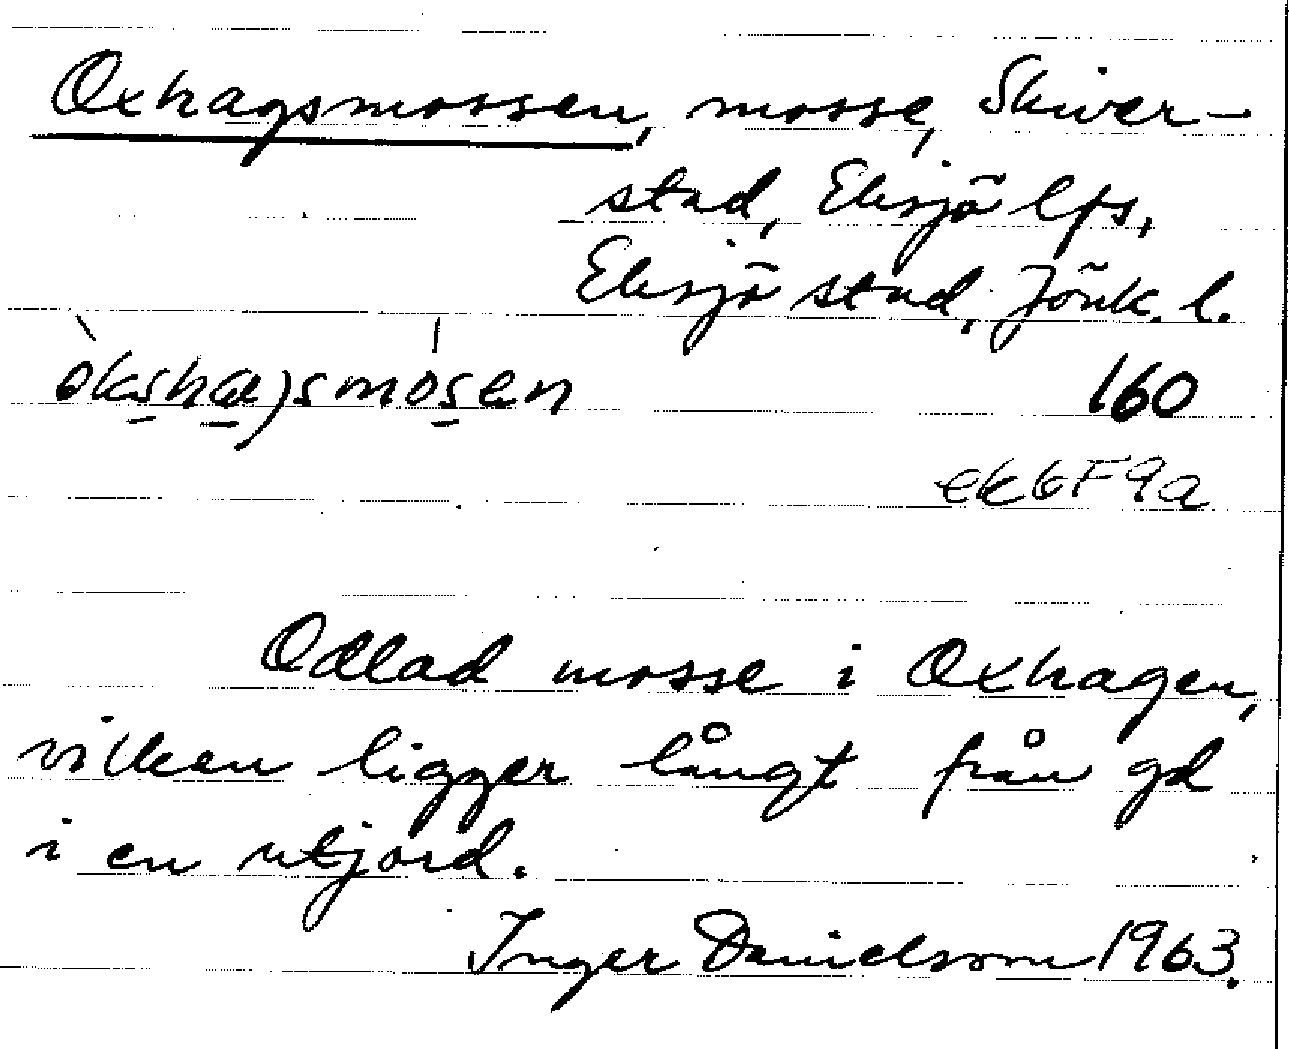 Oxhagsmossen, mosse, Skiver-
stad, Eksjö lfs,
Eksjö stad, Jönk. l.
òkshɑ)smósen 160
ek 6F9a
Odlad mosse i Oxhagen,
vilken ligger långt från gd
i en utjord.
Inger Danielsson 1963.